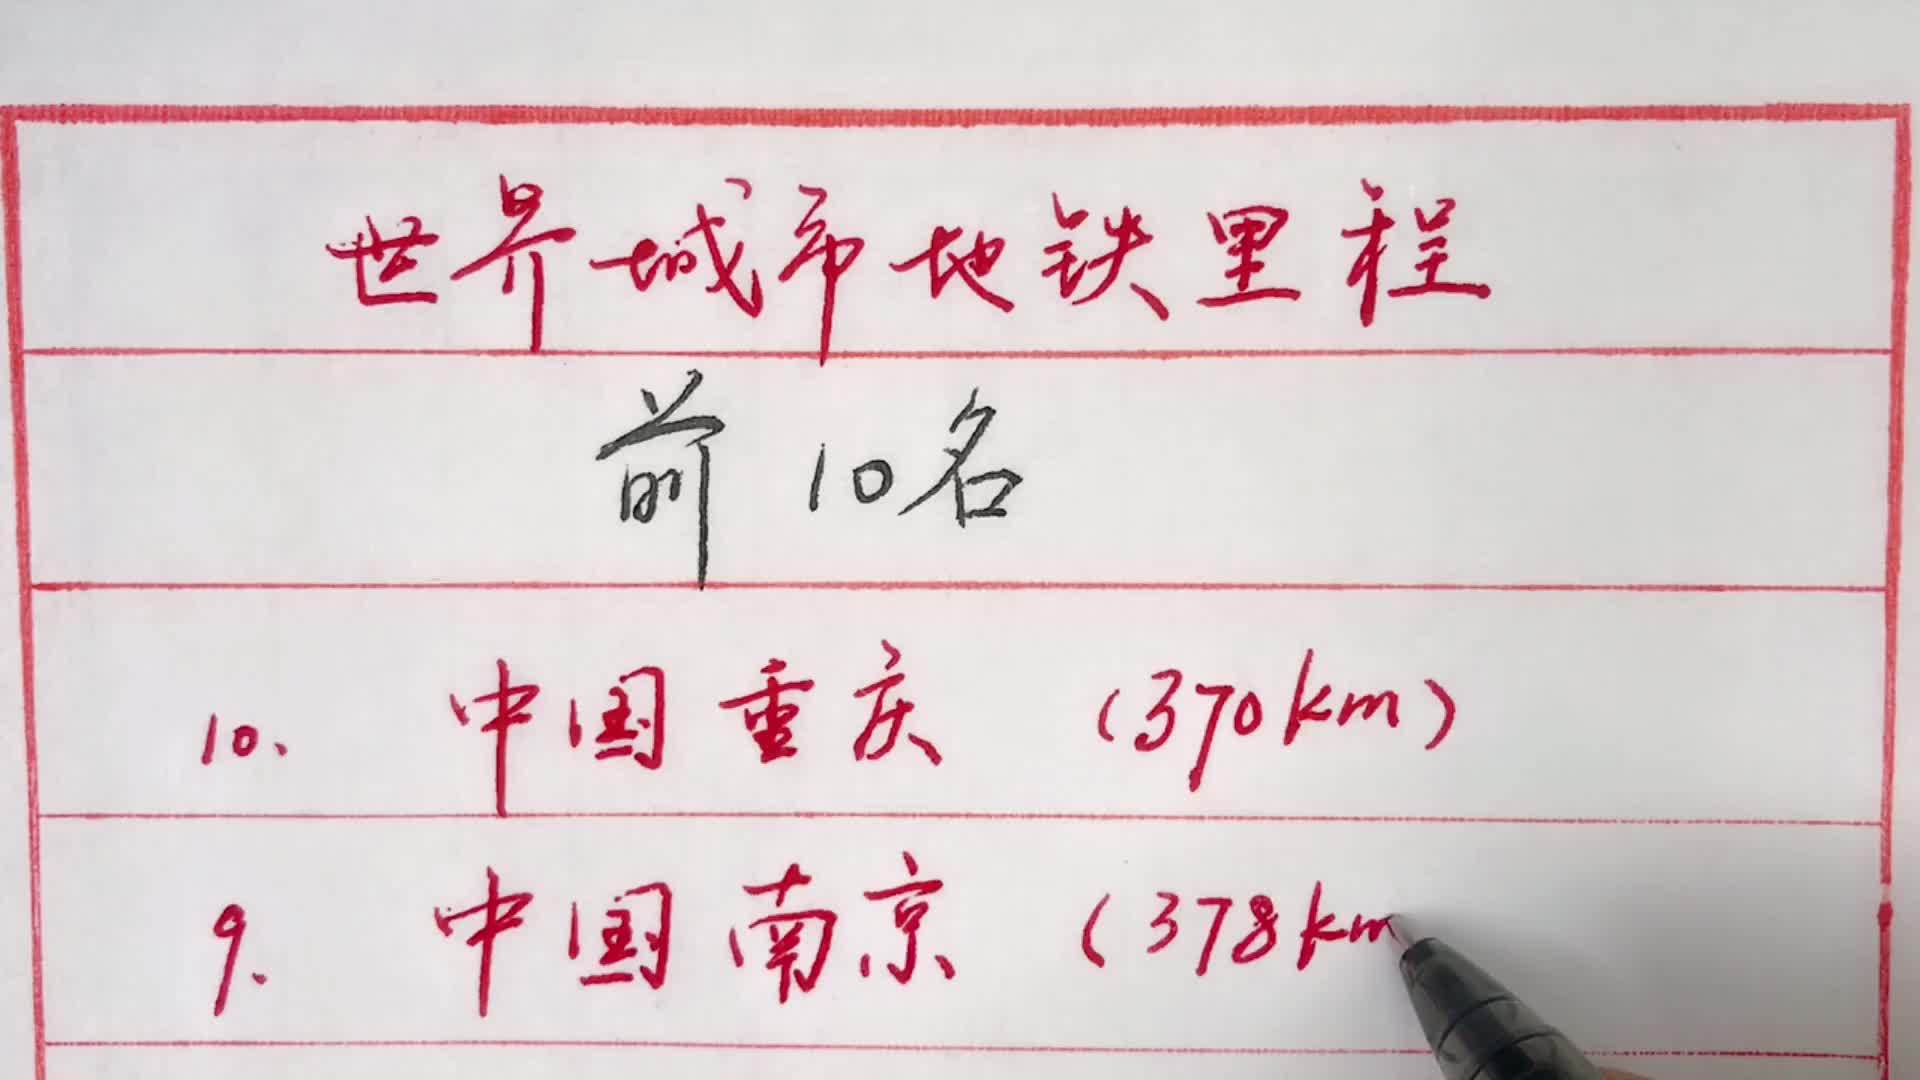 世界城市地铁里程
前10名
10. 中国重庆 (370km)
9. 中国南京 (378km